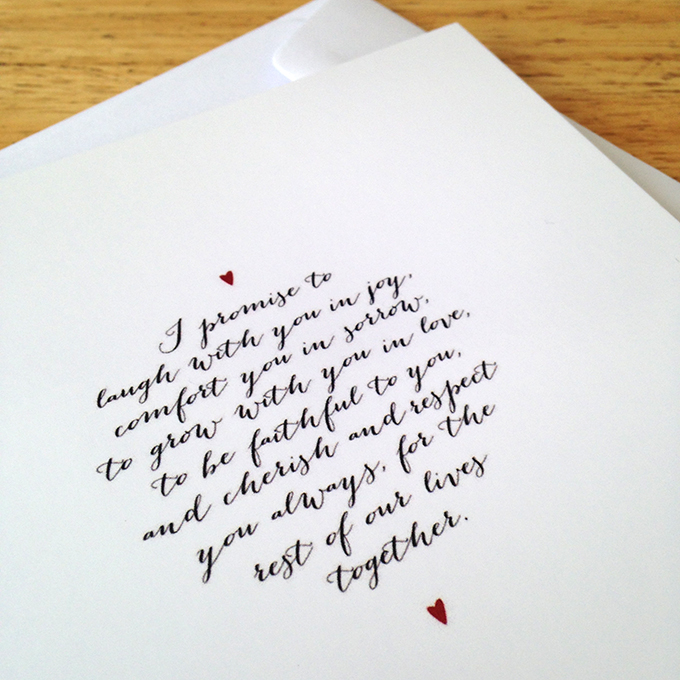 I promise to
laugh with you in joy,
comfort you in sorrow,
to grow with you in love,
to be faithful to you,
and cherish and respect
you always, for the
rest of our lives
together.